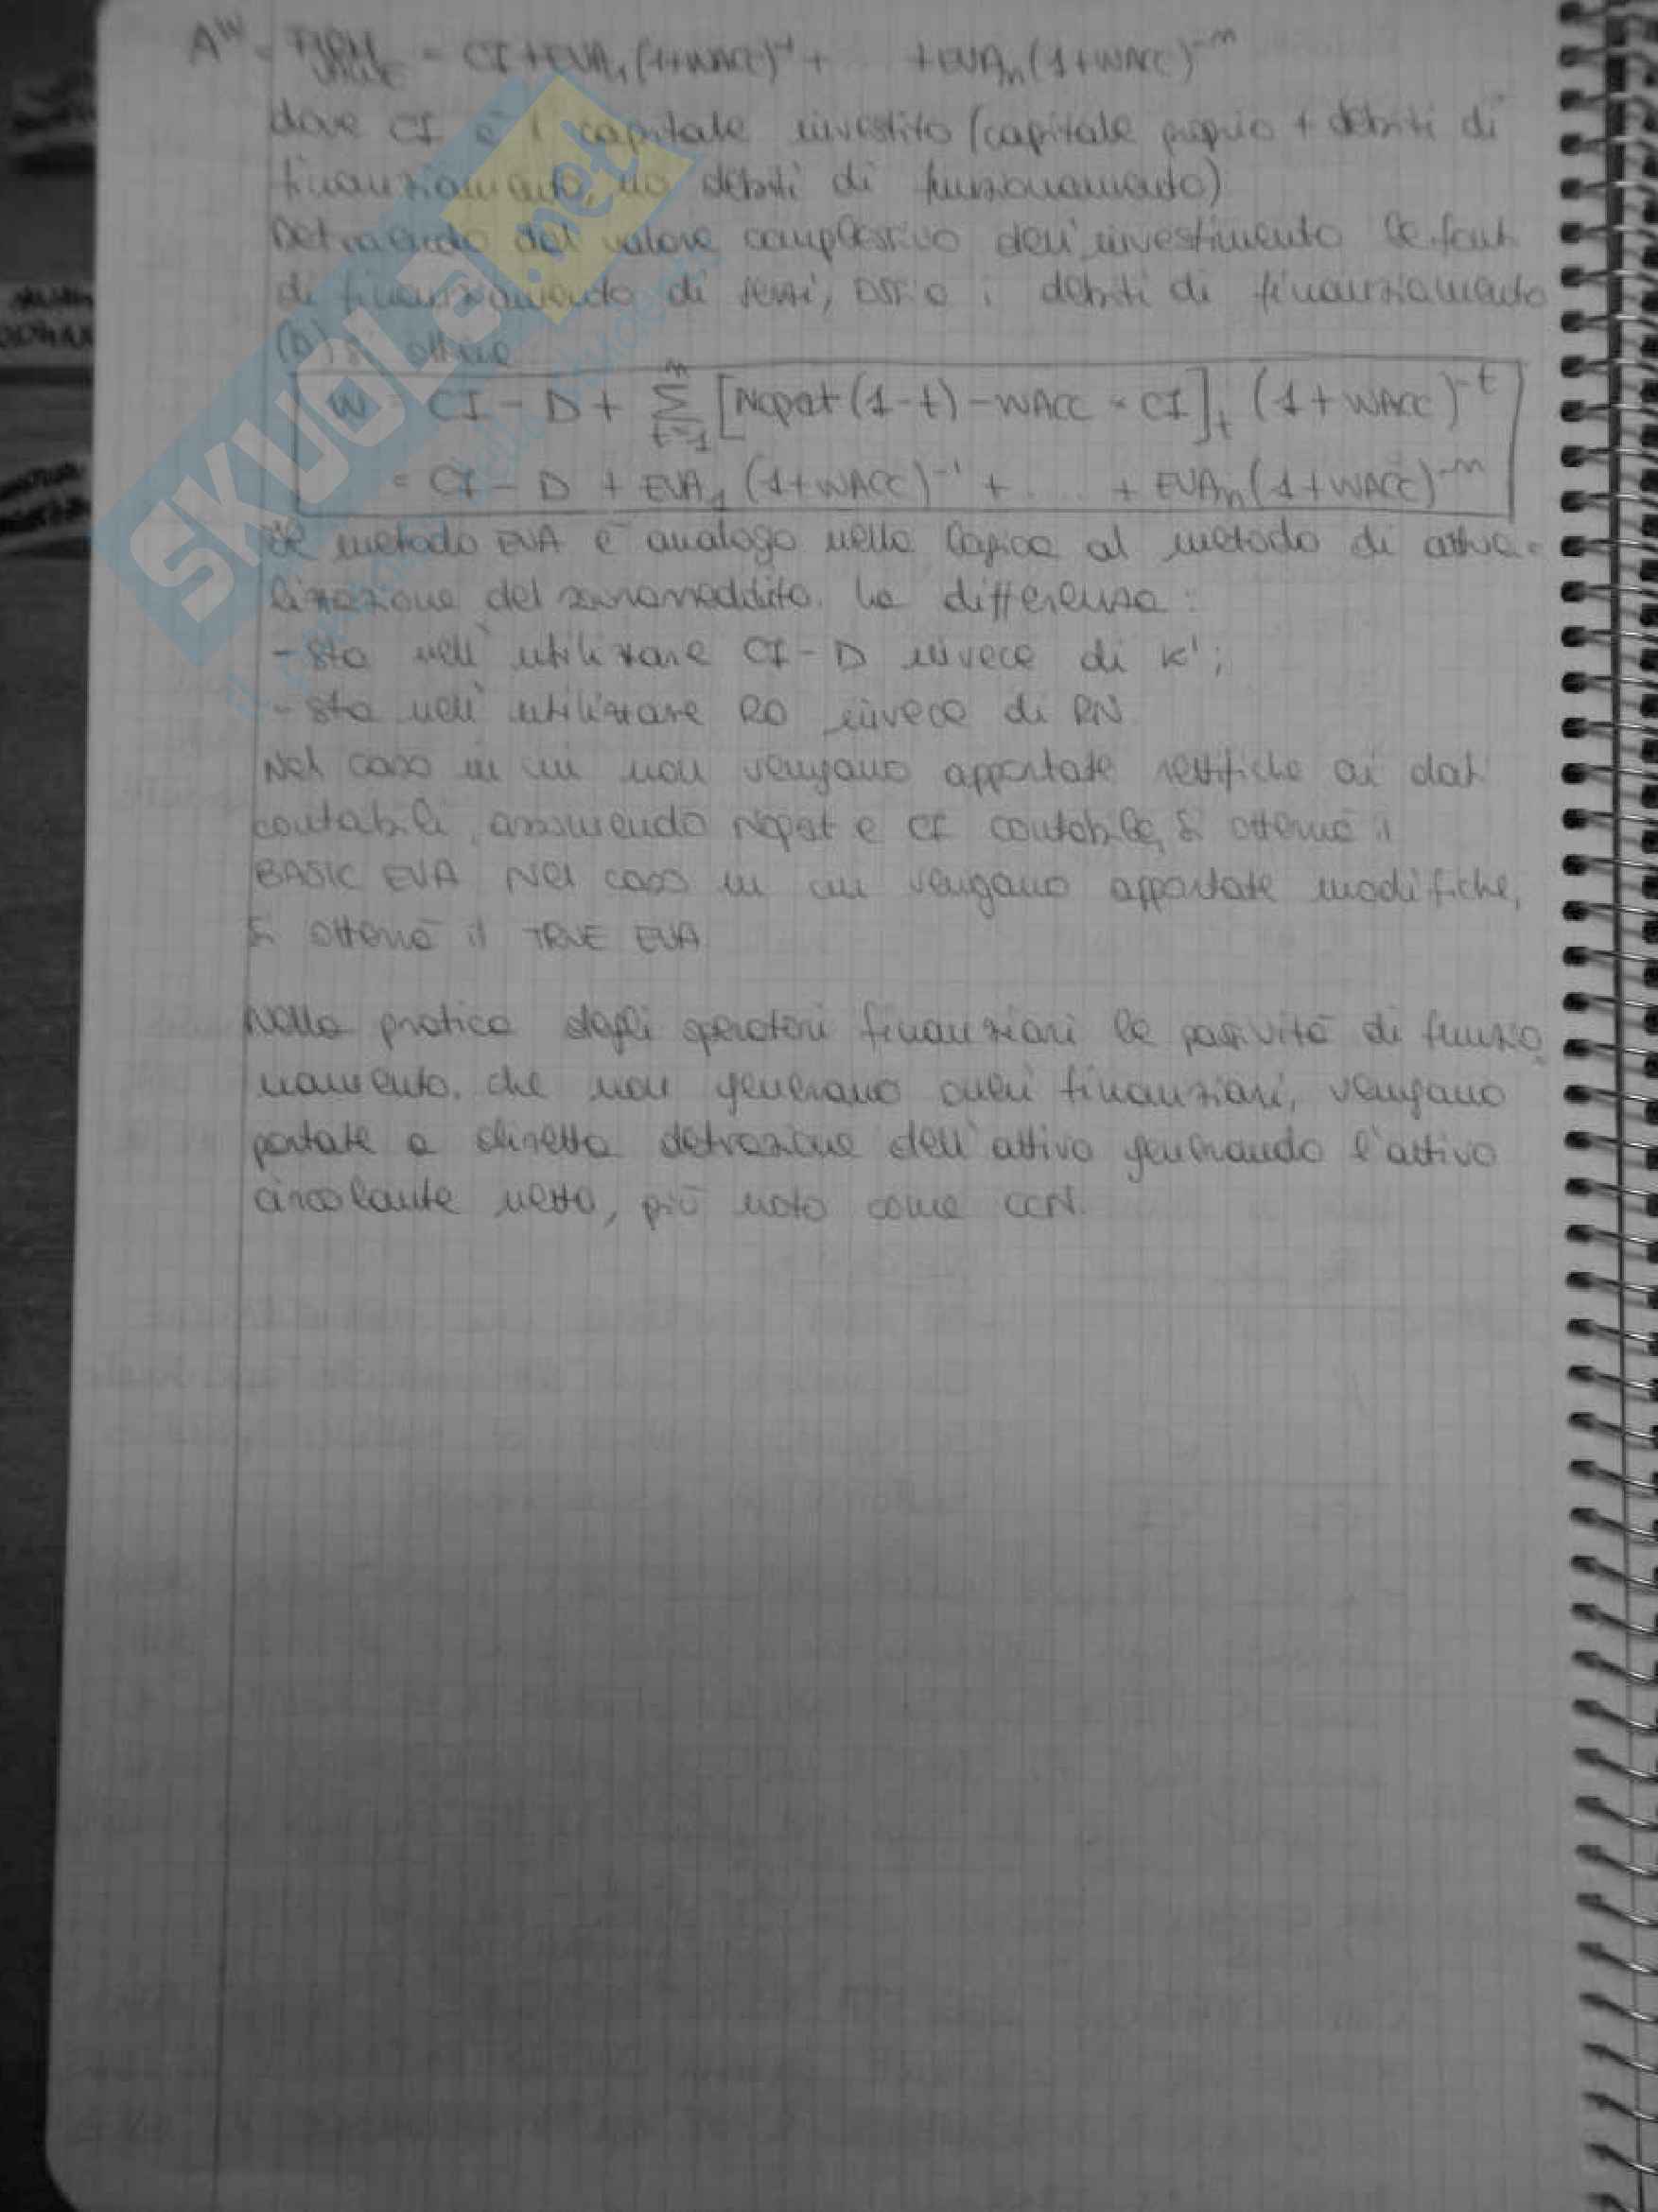 A^W = FIRM VALUE = CI + EVA₁ (1+WACC)^-1 + + EVAₙ (1+WACC)^-n
dove CI è il capitale investito (capitale proprio + debiti di
finanziamento, no debiti di funzionamento)
Detraendo dal valore complessivo dell'investimento le fonti
di finanziamento di terzi, ossia i debiti di finanziamento
(D) si ottiene
W = CI - D + Σ t=1 n [Nopat (1-t) - WACC * CI]t (1+WACC)^-t
= CI - D + EVA₁ (1+WACC)^-1 + .... + EVAₙ (1+WACC)^-n
Il metodo EVA è analogo nella logica al metodo di attua=
lizzazione del sovrareddito. La differenza:
- sta nell'utilizzare CI-D invece di K';
- sta nell'utilizzare RO invece di RN
Nel caso in cui non vengano apportate rettifiche ai dati
contabili, assumendo Nopat e CI contabile, si otterrà il
BASIC EVA Nel caso in cui vengano apportate modifiche,
si otterrà il TRUE EVA
Nella pratica degli operatori finanziari le passività di funzio
namento, che non generano oneri finanziari, vengano
portate a diretta detrazione dell'attivo generando l'attivo
circolante netto, più noto come CCN.
SKUOLA.net